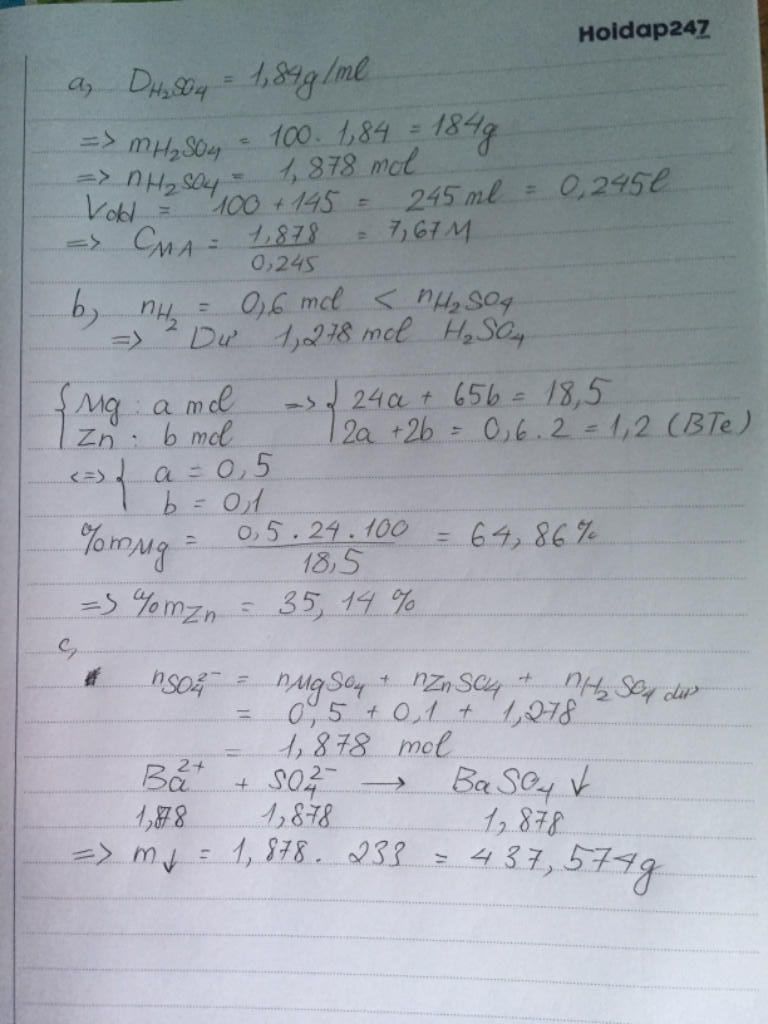 Hoidap247
a, D_H₂SO₄ = 1,84g/ml
=> m_H₂SO₄ = 100 . 1,84 = 184g
=> n_H₂SO₄ = 1,878 mol
Vdd = 100 + 145 = 245 ml = 0,245l
=> C_MA = 1,878 / 0,245 = 7,67M
b, n_H₂ = 0,6 mol < n_H₂SO₄
=> Dư 1,278 mol H₂SO₄
{ Mg : a mol => { 24a + 65b = 18,5
Zn : b mol 2a + 2b = 0,6 . 2 = 1,2 (BTe)
<=> { a = 0,5
b = 0,1
%m_Mg = 0,5 . 24 . 100 / 18,5 = 64,86%
=> %m_Zn = 35,14 %
c,
n_SO₄²⁻ = n_MgSO₄ + n_ZnSO₄ + n_H₂SO₄ dư
= 0,5 + 0,1 + 1,278
= 1,878 mol
Ba²⁺ + SO₄²⁻ → BaSO₄ ↓
1,878 1,878 1,878
=> m↓ = 1,878 . 233 = 437,574g